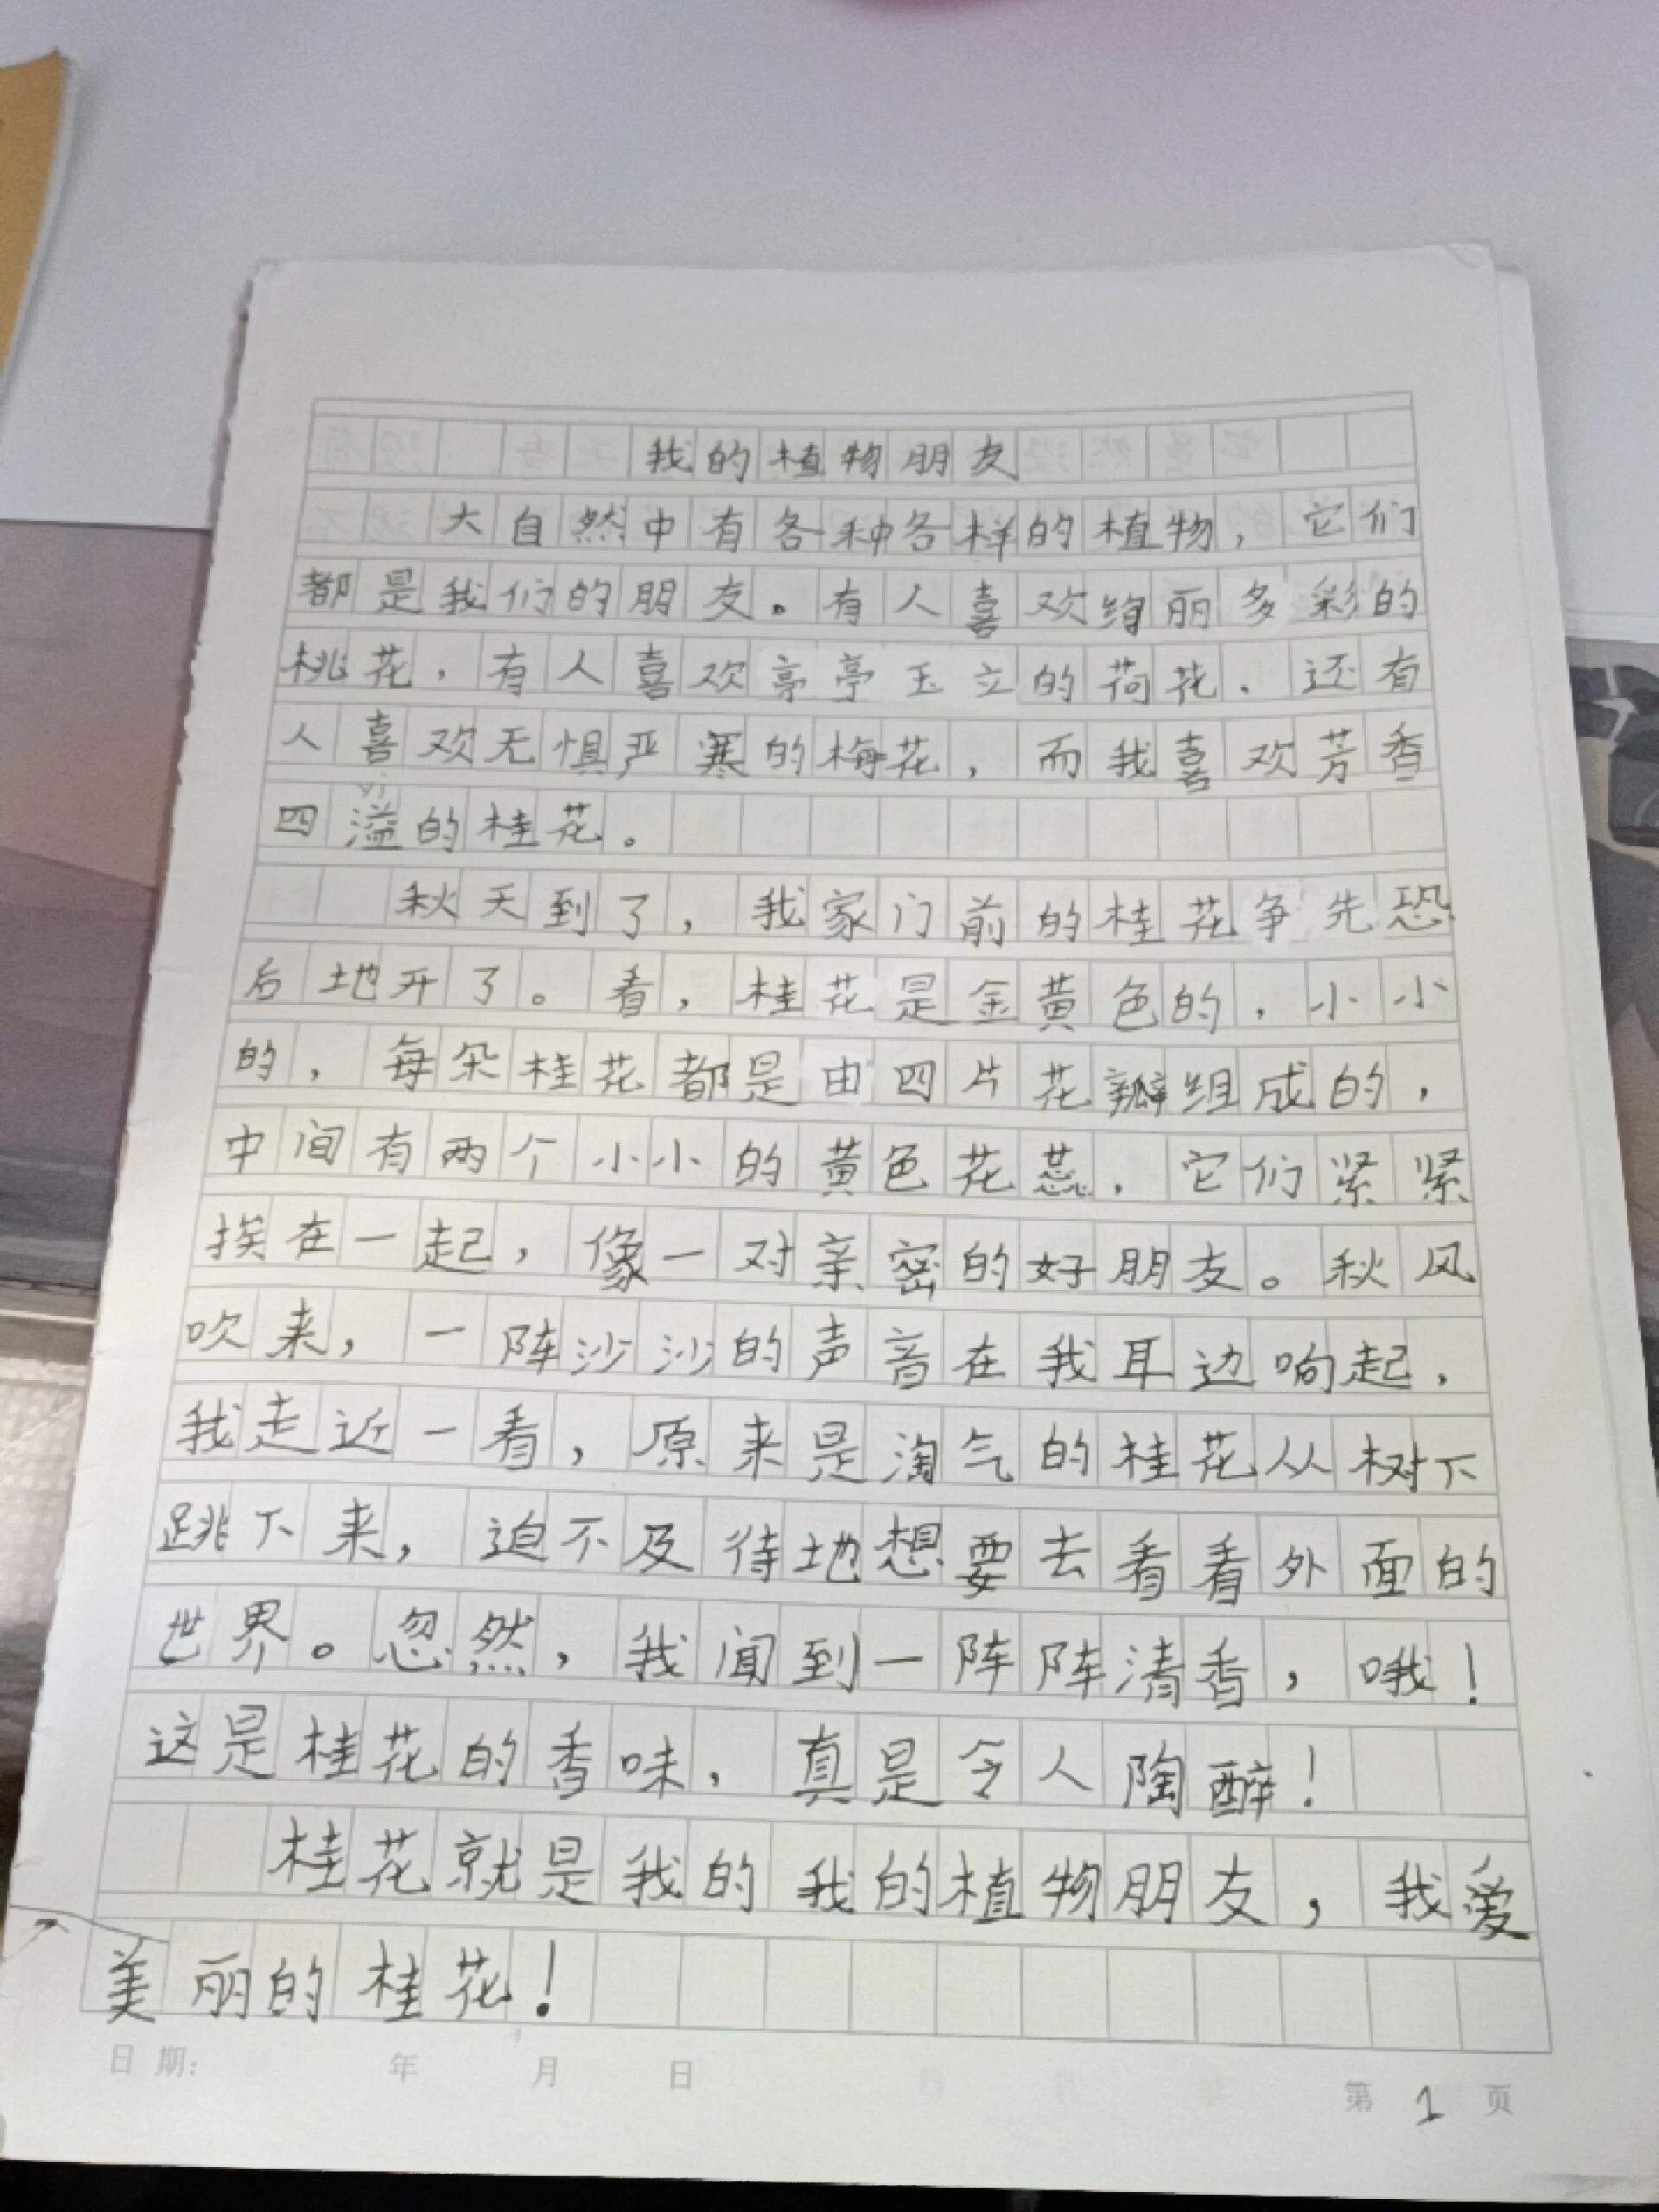 我的植物朋友
大自然中有各种各样的植物，它们
都是我们的朋友。有人喜欢绚丽多彩的
桃花，有人喜欢亭亭玉立的荷花，还有
人喜欢无惧严寒的梅花，而我喜欢芳香
四溢的桂花。
秋天到了，我家门前的桂花争先恐
后地开了。看，桂花是金黄色的，小小
的，每朵桂花都是由四片花瓣组成的，
中间有两个小小的黄色花蕊，它们紧紧
挨在一起，像一对亲密的好朋友。秋风
吹来，一阵沙沙的声音在我耳边响起，
我走近一看，原来是淘气的桂花从树下
跳下来，迫不及待地想要去看看外面的
世界。忽然，我闻到一阵阵清香，哦！
这是桂花的香味，真是令人陶醉！
桂花就是我的我的植物朋友，我爱
美丽的桂花！
日期： 年 月 日
第 1 页